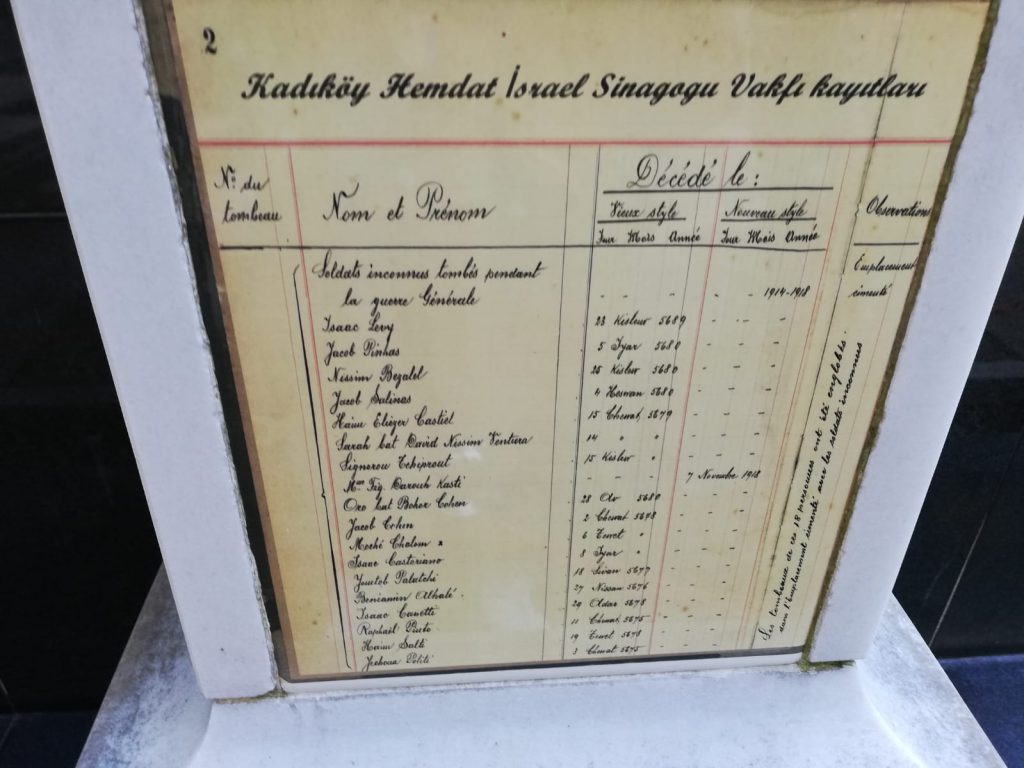 2
Kadıköy Hemdat İsrael Sinagogu Vakfı kayıtları
Nº du tombeau
Nom et Prénom
Décédé le:
Vieux style
Nouveau style
Jour Mois Année
Jour Mois Année
Observations
Soldats inconnus tombés pendant
la guerre Générale - - - - 1914-1918
Emplacement
cimenté
Isaac Levy 23 Kislew 5689 - - -
Jacob Pinhas 5 Iyar 5680 - - -
Nissim Bezalel 25 Kislew 5680 - - -
Jacob Salinas 4 Hesvan 5680 - - -
Haim Eliezer Castiel 15 Chevat 5679 - - -
Sarah bat David Nissim Ventura 14 " " - - -
Signorou Tchiprout 15 Kislew " - - -
Mme Fig. Barouh Kasti - - - 7 Novembre 1918
Oro bat Bohor Cohen 28 Av 5680 - - -
Jacob Cohen 2 Chevat 5678 - - -
Moché Chalom 6 Tevet " - - -
Isaac Castoriano 8 Iyar " - - -
Jomtob Palatchi 18 Sivan 5677 - - -
Beniamin Alhalé 27 Nissan 5676 - - -
Isaac Canetti 29 Adar 5678 - - -
Raphaël Pinto 11 Chevat 5675 - - -
Haim Salti 19 Tevet 5678 - - -
Jehoua Politi 3 Chevat 5675 - - -
Les tombeaux de ces 18 personnes ont été englobés
dans l'emplacement cimenté avec les soldats inconnus